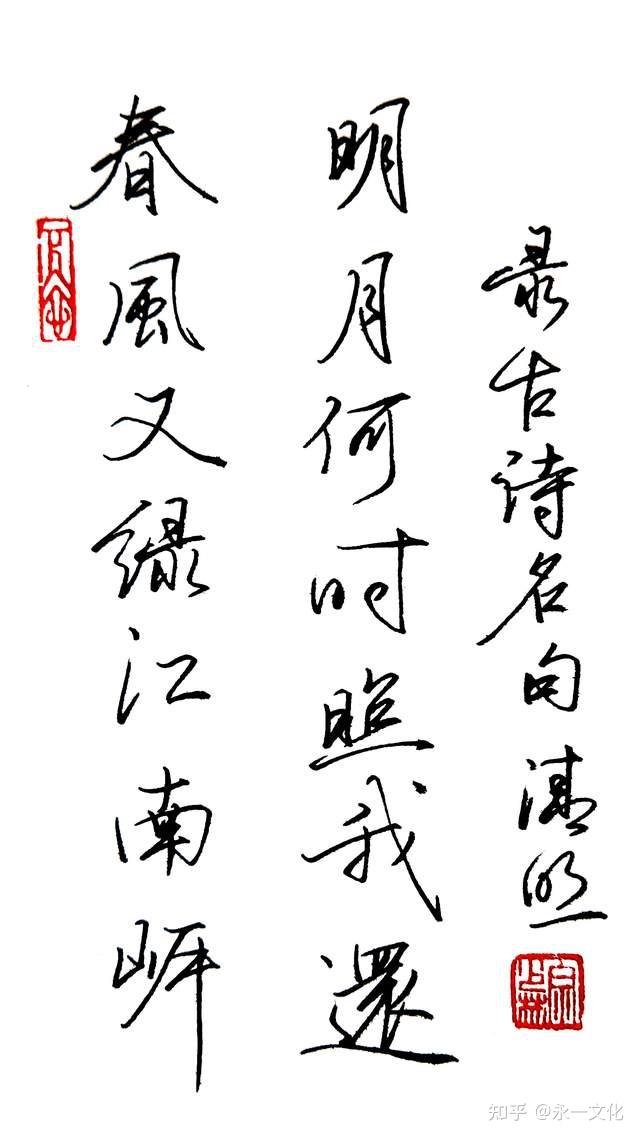 春風又緑江南岸
明月何时照我還
录古诗名句
知乎 @永一文化